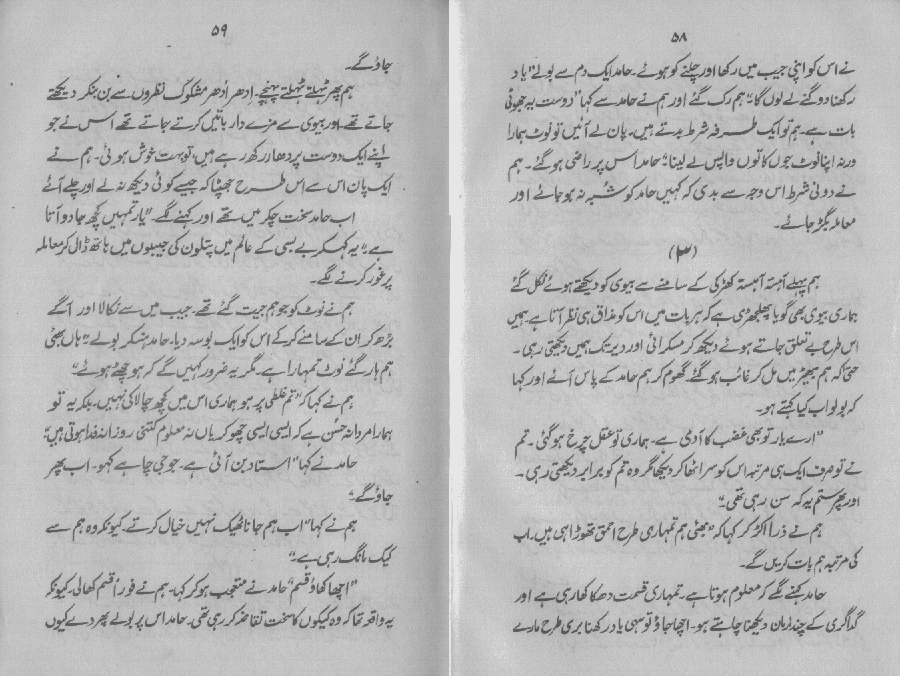 ۵۸
نے اس کو اپنی جیب میں رکھا اور چلنے کو ہوئے۔ حامد ایک دم سے بولے "یاد
رکھنا دو گنے لے لوں گا" ہم رک گئے اور ہم نے حامد سے کہا "دوست یہ جھوٹی
بات ہے۔ ہم تو ایک طرفہ شرط بدتے ہیں۔ پان لے آئیں تو نوٹ ہمارا
ورنہ اپنا نوٹ جوں کا توں واپس لے لینا" حامد اس پر راضی ہو گئے۔ ہم
نے دونی شرط اس وجہ سے بدی کہ کہیں حامد کو شبہ نہ ہو جائے اور
معاملہ بگڑ جائے۔
(۳)
ہم پہلے آہستہ آہستہ کھڑکی کے سامنے سے بیوی کو دیکھتے ہوئے نکل گئے
ہماری بیوی بھی گویا پھلجھڑی ہے کہ ہر بات میں اس کو مذاق ہی نظر آتا ہے۔ ہمیں
اس طرح بے تعلق جاتے ہوئے دیکھ کر مسکرائی اور دیر تک ہمیں دیکھتی رہی۔
حتیٰ کہ ہم بھیڑ میں مل کر غائب ہو گئے۔ گھوم کر ہم حامد کے پاس آئے اور کہا
کہ بولو اب کیا کہتے ہو۔
"ارے یار تو بھی غضب کا آدمی ہے۔ ہماری تو عقل چرخ ہو گئی۔ تم
نے تو صرف ایک ہی مرتبہ اس کو سر اٹھا کر دیکھا مگر وہ تم کو برابر دیکھتی رہی۔
اور پھر ستم یہ کہ سن رہی تھی۔"
ہم نے ذرا اکڑ کر کہا کہ "بھئی ہم تمہاری طرح احمق تھوڑا ہی ہیں۔ اب
کی مرتبہ ہم بات کریں گے۔
حامد کہنے لگے کہ معلوم ہوتا ہے۔ تمہاری قسمت دھکا کھا رہی ہے اور
گداگری کے چند ارمان دیکھنا چاہتے ہو۔ اچھا جاؤ تو سہی یاد رکھنا بری طرح مارے
۵۹
جاؤ گے۔
ہم پھر ٹہلتے ٹہلتے پہنچے۔ ادھر اُدھر مشکوک نظروں سے بن بنکر دیکھتے
جاتے تھے۔ اور بیوی سے مزے دار باتیں کرتے جاتے تھے اس نے جو
اپنے ایک دوست پر دھار رکھ رہے ہیں، تو بہت خوش ہوئی۔ ہم نے
ایک پان اس سے اس طرح جھپٹا کہ جیسے کوئی دیکھ نہ لے اور چلے آئے
اب حامد سخت چکر میں تھے اور کہنے لگے۔ "یار تمہیں کچھ جادو آتا
ہے" یہ کہکر بے بسی کے عالم میں پتلون کی جیبوں میں ہاتھ ڈال کر معاملہ
پر غور کرنے لگے۔
ہم نے نوٹ کو جو ہم جیت گئے تھے۔ جیب میں سے نکالا اور آگے
بڑھ کر ان کے سامنے کر کے اس کو ایک بوسہ دیا۔ حامد ہنسکر بولے "ہاں بھئی
ہم ہار گئے نوٹ تمہارا ہے۔ مگر یہ ضرور کہیں گے کہ ہو چھٹے ہوئے"
ہم نے کہا کہ "تم غلطی پر ہو ہماری اس میں کچھ چالاکی نہیں۔ بلکہ یہ تو
ہمارا مردانہ حسن ہے کہ ایسی ایسی چھوکریاں نہ معلوم کتنی روزانہ فدا ہوتی ہیں"
حامد نے کہا "استاد بن آئی ہے۔ جو جی چاہے کہو۔ اب پھر
جاؤ گے"
ہم نے کہا "اب ہم جانا ٹھیک نہیں خیال کرتے۔ کیونکہ وہ ہم سے
کیک مانگ رہی ہے"
"اچھا کھاؤ قسم" حامد نے متعجب ہو کر کہا۔ ہم نے فوراً قسم کھالی۔ کیونکہ
یہ واقعہ تھا کہ وہ کیکوں کا سخت تقاضہ کر رہی تھی۔ حامد اس پر بولے پھر دے کیوں